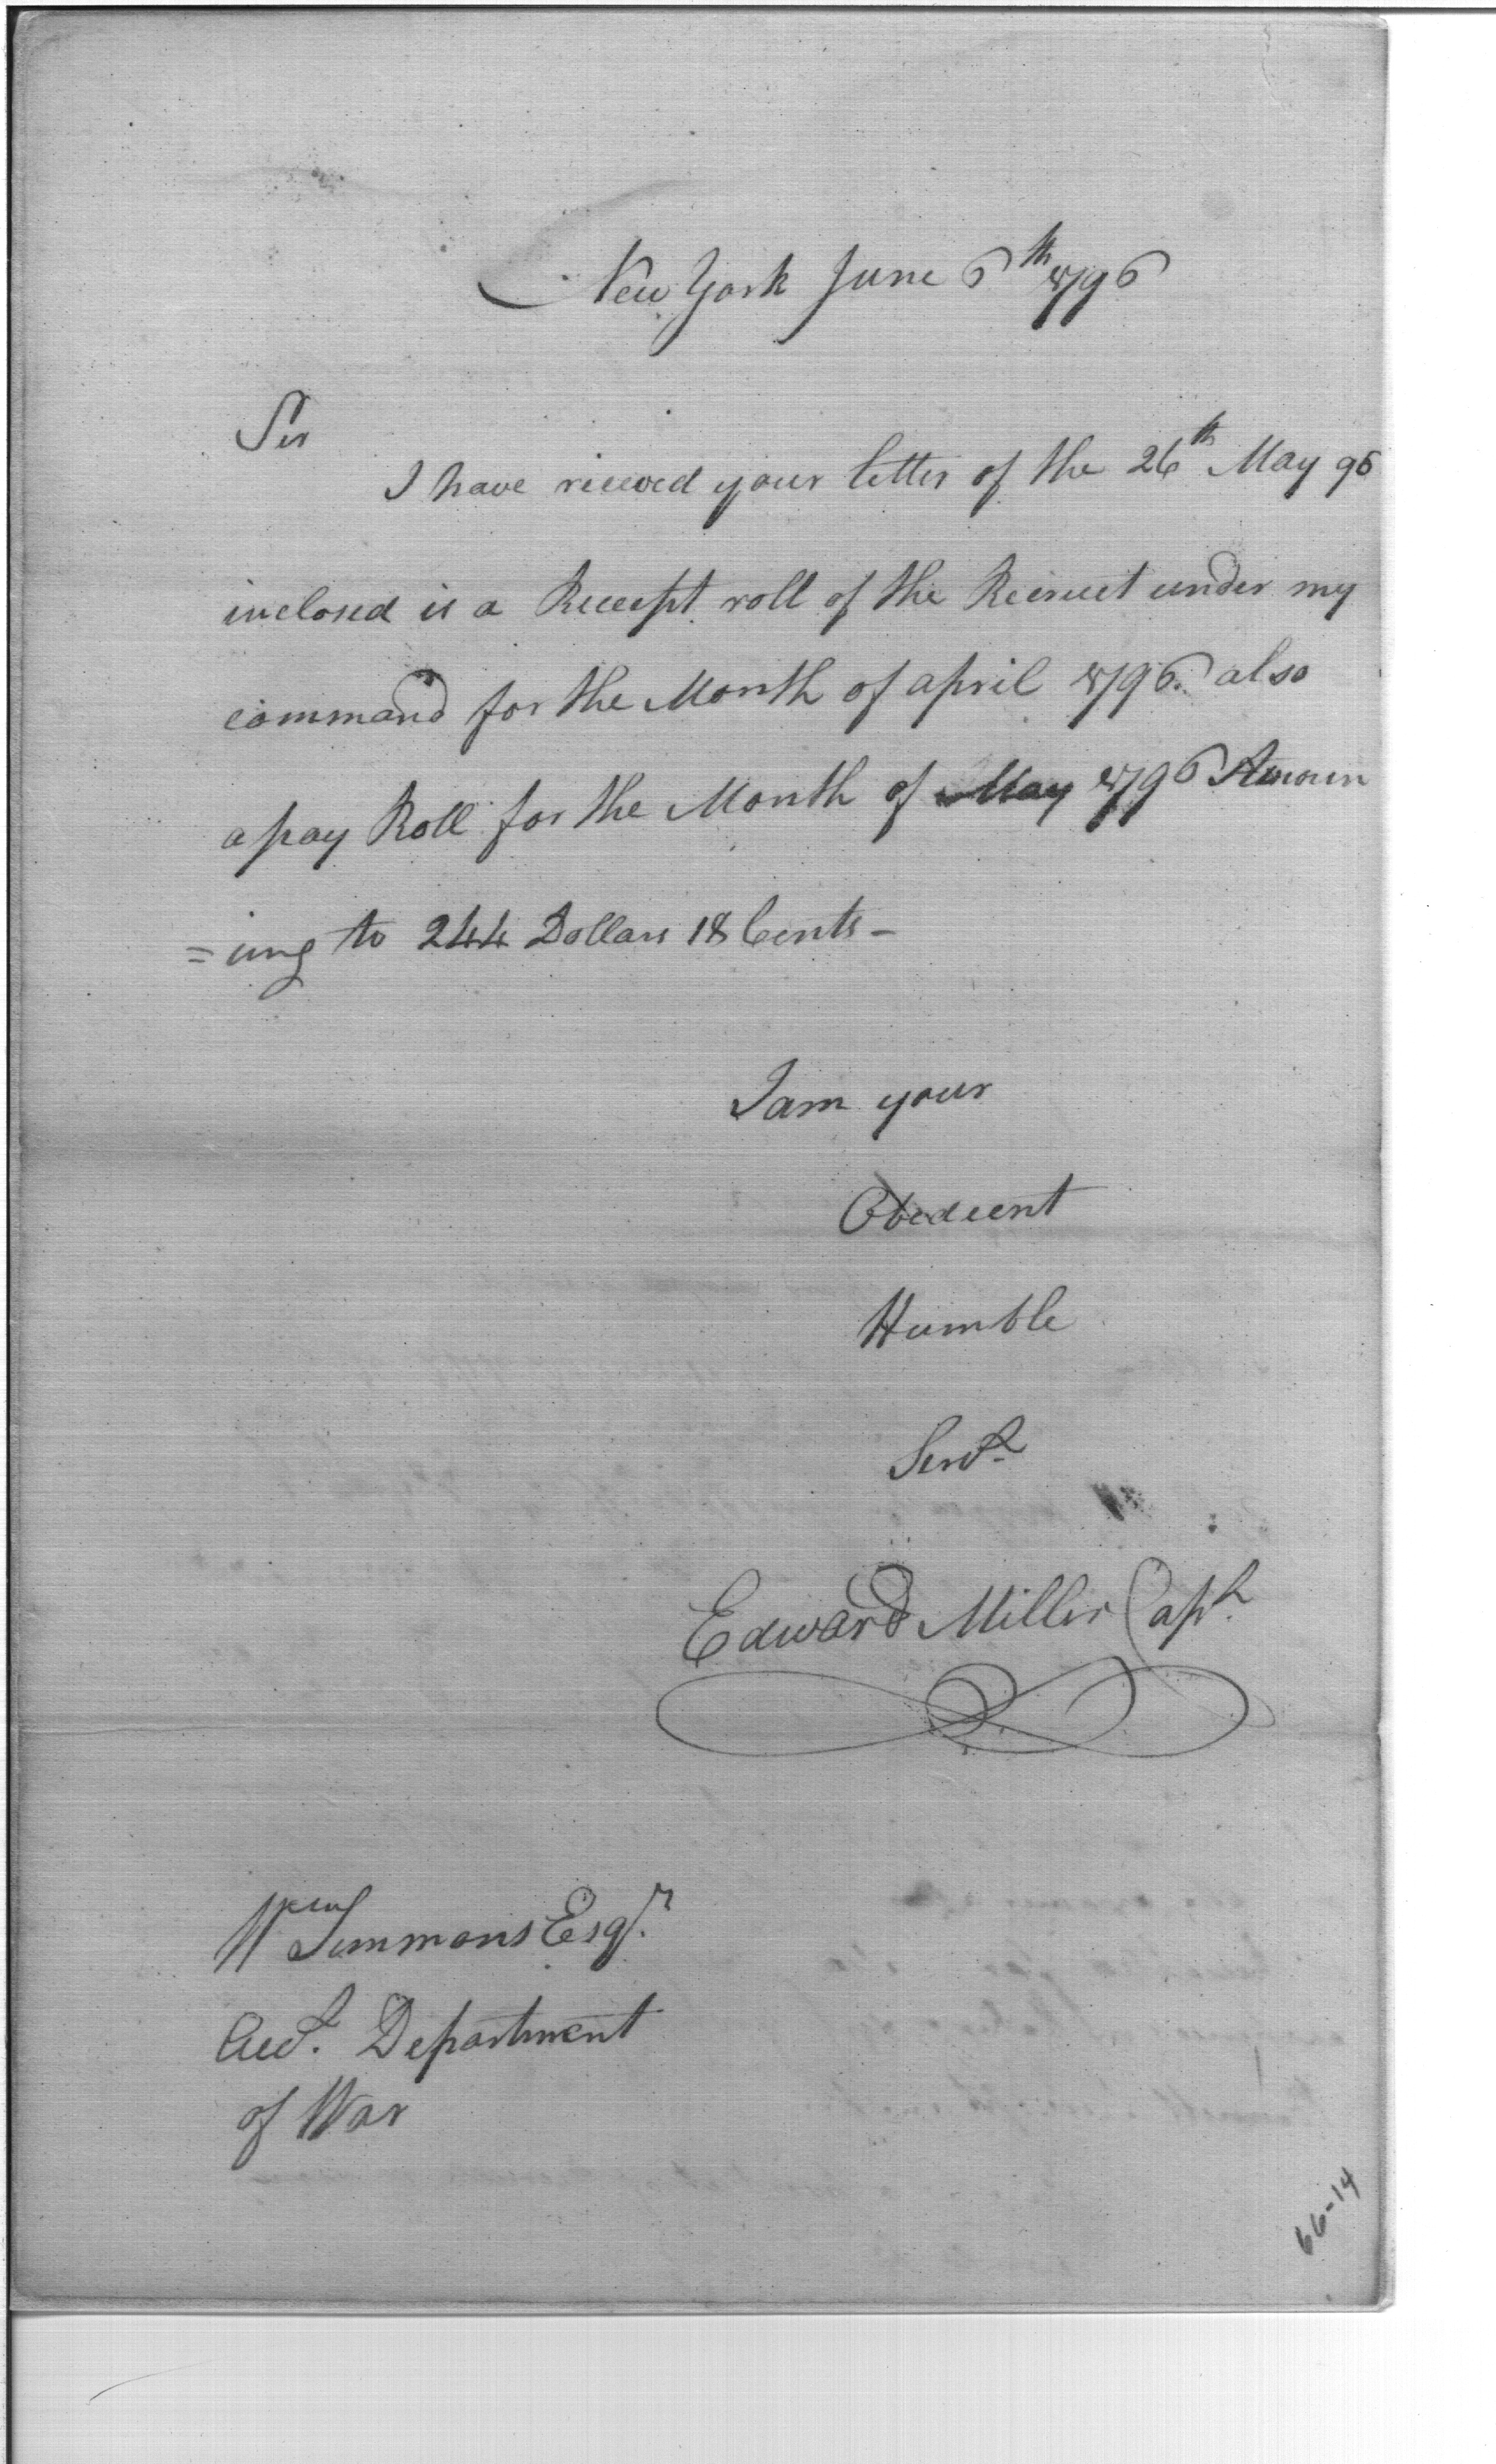 New York June 6th 1796
Sir
I have rieeved your letter of the 26th May 96
inclosed is a Receept roll of the Reicruet under my
command for the Month of april 1796. also
a pay Roll for the Month of May 1796 Amoun
=ing to 244 Dollars 18 Cents -
I am your
Obedeent
Humble
Servt
Edward Miller Capt
Wm Simmons Esqr.
Acct. Department
of War
66-14